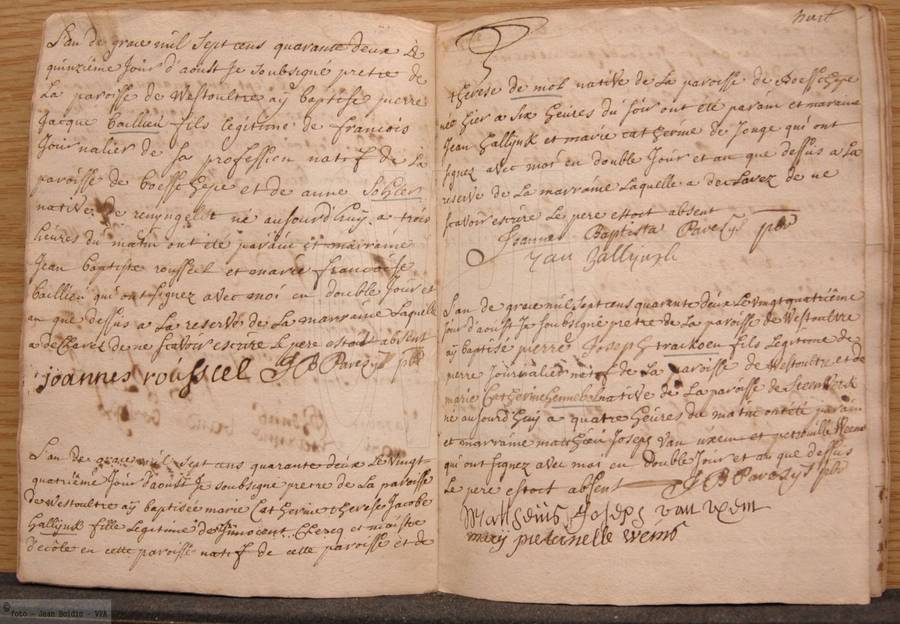 L'an de grace mil sept cens quarante deux Le
quinziéme Jour d'aoust Je soubsigné pretre de
La paroisse de Westoultre aÿ baptisé pierre
Jacque baillieu fils legitime de francois
Journalier de sa profession natif de La
paroisse de boesschepe et de anne Sohier
native de renyngelst né aujourd'huy a trois
heures du matin ont été parain et marraine
Jean baptiste rousseil et marie francoise
baillieu qui ont signez avec moi en double Jour et
an que dessus a La reserve de La marraine Laquelle
a declarez de ne scavoir escrire Le pere estoit absent
joannes rousseel J B Paresÿs pbr
L'an de grace mil sept cens quarante deux Le vingt
quatriéme Jour d'aoust Je soubsigné pretre de La paroisse
de Westoultre aÿ baptisée marie Catherine therese Jacobe
Hallÿnk fille Legitime de Innocent Clercq et maistre
d'école en cette paroisse natif de cette paroisse et de
huit
therese de mol native de La paroisse de Boesschepe
née hier a six heures du soir ont été parain et maraine
Jean Hallÿnk et marie catherine de Jonge qui ont
signez avec moi en double Jour et an que dessus a La
reserve de La marraine Laquelle a declarez de ne
scavoir escrire Le pere estoit absent
Joannes Baptista Paresÿs pbr
Jan Hallynck
L'an de grace mil sept cens quarante deux Le vingt quatriéme
Jour d'aoust Je soubsigné pretre de La paroisse de Westoultre
aÿ baptisé pierre Joseph fils Legitime de
pierre Journalier natif de La paroisse de Westoultre et de
marie Catherine hennebel native de La paroisse de Steenvorde
né aujourd'huy a quatre heures du matin ont été parain
et marraine matthieu Joseph van uxem et petronille Weens
qui ont signez avec moi en double Jour et an que dessus
Le pere estoit absent J B Paresÿs pbr
Mattheüs Joseph van uxem
marÿ pieternelle wems
© foto - Jean Boidin - VFA